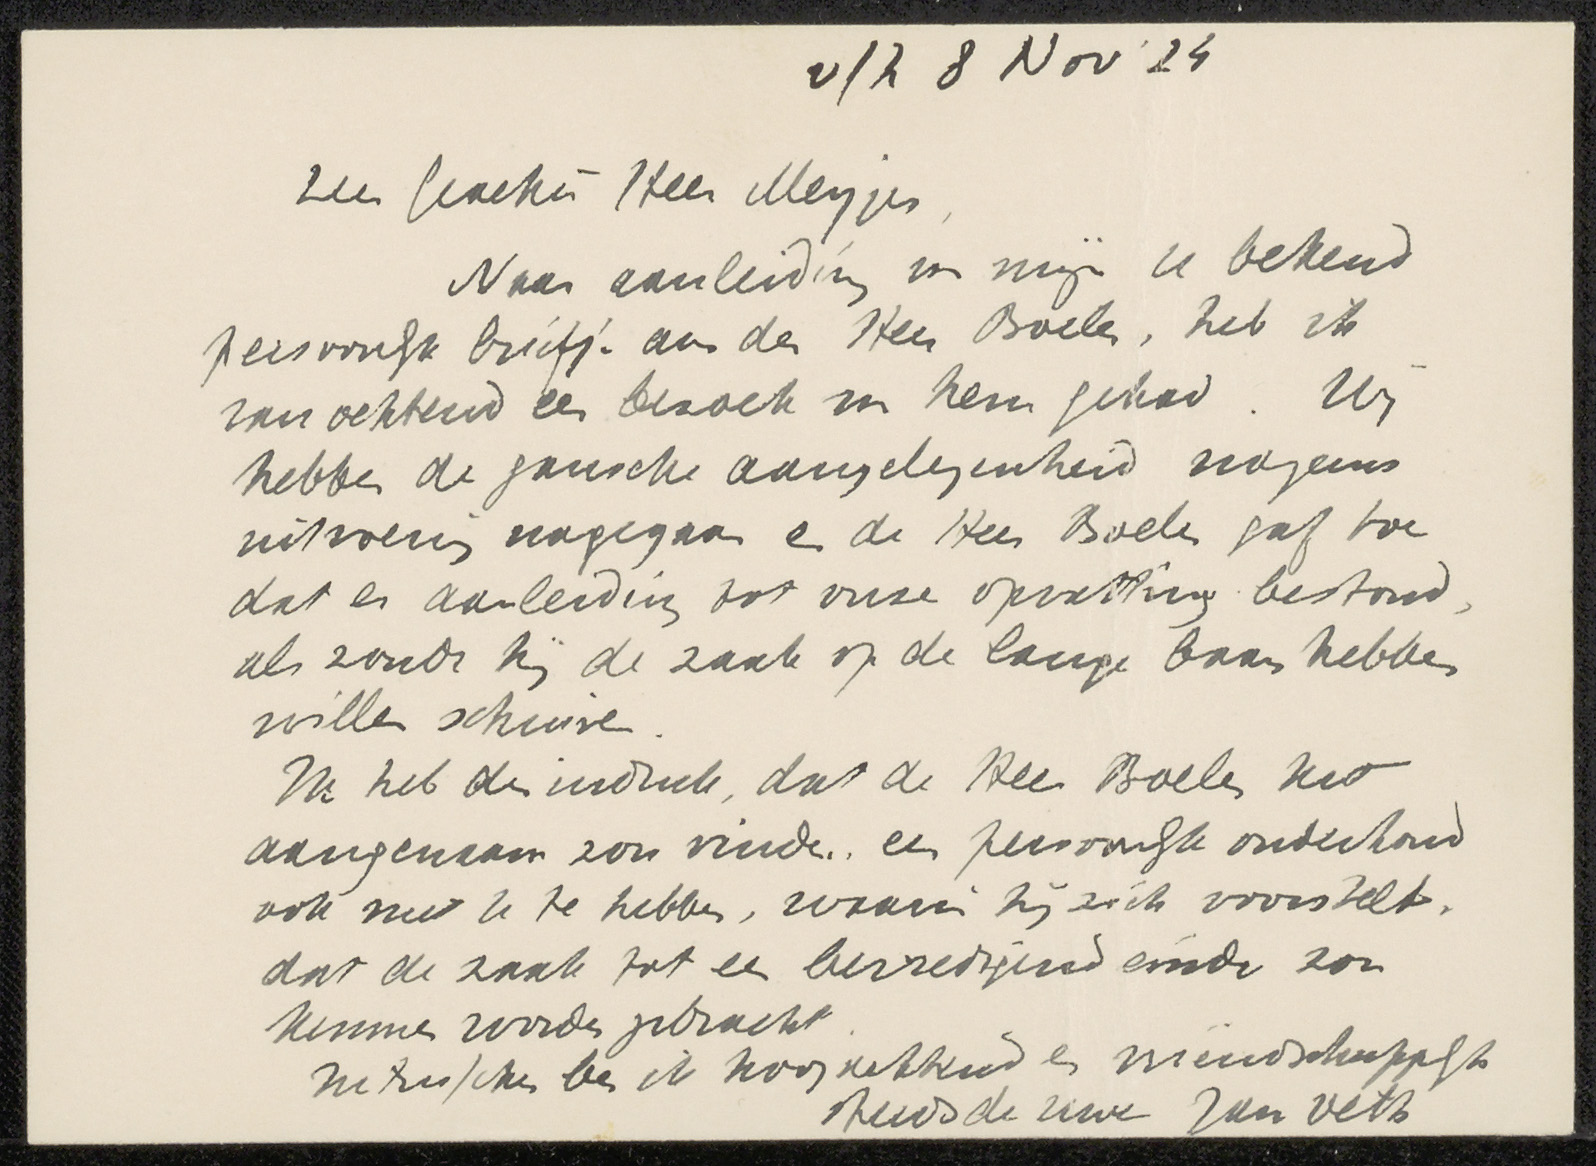 v/h 8 Nov '24
Zeer Geachte Heer Meyjes,
Naar aanleiding van mijn U bekend
persoonlijk briefje aan den Heer Boele, heb ik
van ochtend een bezoek van hem gehad. Wij
hebben de gansche aangelegenheid nog eens
uitvoerig nagegaan en de Heer Boele gaf toe
dat er aanleiding tot onze opvatting bestond,
als zoude hij de zaak op de lange baan hebben
willen schuiven.
Ik heb den indruk, dat de Heer Boele het
aangenaam zou vinden een persoonlijk onderhoud
ook met U te hebben, waarin hij zich voorstelt,
dat de zaak tot een bevredigend einde zou
kunnen worden gebracht.
Intusschen ben ik hoogachtend en vriendschappelijk
steeds de uwe Jan Veth